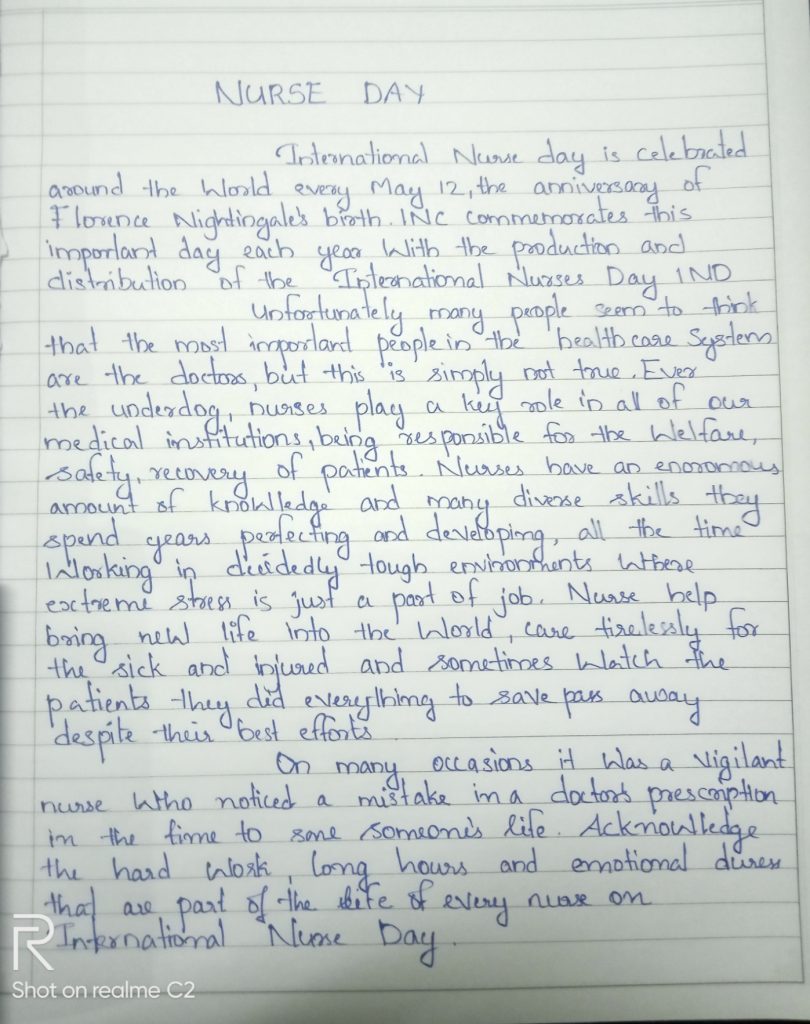 NURSE DAY
International Nurse day is celebrated
around the World every May 12, the anniversary of
Florence Nightingale's birth. INC commemorates this
important day each year With the production and
distribution of the International Nurses Day IND
Unfortunately many people seem to think
that the most important people in the health care System
are the doctors, but this is simply not true. Ever
the underdog, nurses play a key role in all of our
medical institutions, being responsible for the Welfare,
safety, recovery of patients. Nurses have an enoromous
amount of knowledge and many diverse skills they
spend years perfecting and developing, all the time
Working in decidedly tough environments Where
extreme stress is just a part of job. Nurse help
bring new life into the World, care tirelessly for
the sick and injured and sometimes Watch the
patients they did everything to save pass away
despite their best efforts
On many occasions it Was a vigilant
nurse Who noticed a mistake in a doctors prescription
in the time to save someone's life. Acknowledge
the hard Work, long hours and emotional duress
that are part of the life of every nurse on
International Nurse Day.
R
Shot on realme C2